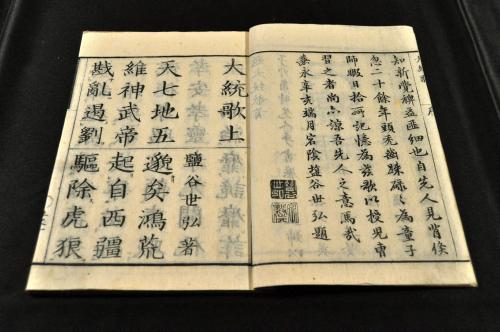 知新覺裨益匪細也自先人見背倏
忽二十餘年頭禿齒踈碌〻為童子
師暇日拾所記憶為茲歌以授兒曹
習之者尚亦諒吾先人之意焉哉
嘉永辛亥端月宕陰鹽谷世弘題
大統歌上 鹽谷世弘著
天七地五邈矣鴻荒
維神武帝起自西疆
戡亂遏劉驅除虎狼